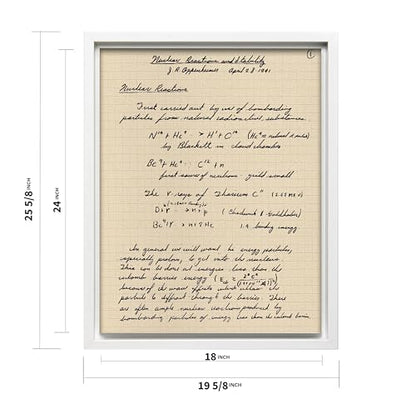 Nuclear Reactions and Stability
J. R. Oppenheimer April 28 1941
1
Nuclear Reactions
First carried out by use of bombarding
particles from natural radioactive substances.
N¹⁴ + He⁴ → H¹ + O¹⁷ (He⁴ = natural α rays)
by Blackett in cloud chambers
Be⁹ + He⁴ → C¹² + n
first source of neutrons - yield small
The γ rays of Thorium C" (2.62 MEV)
D + γ → n + p (Chadwick & Goldhaber)
Be⁹ + γ → n + 8 He 1.6 binding energy
In general we will want be energy particles,
especially protons, to get into the nucleus.
This can be done at energies less than the
coulomb barrier energy
because of the wave effects which allow the
particle to diffract through the barrier. There
are often ample nuclear reactions produced by
bombarding particles of energy less than the coulomb barrier.
25 5/8 INCH
24 INCH
18 INCH
19 5/8 INCH